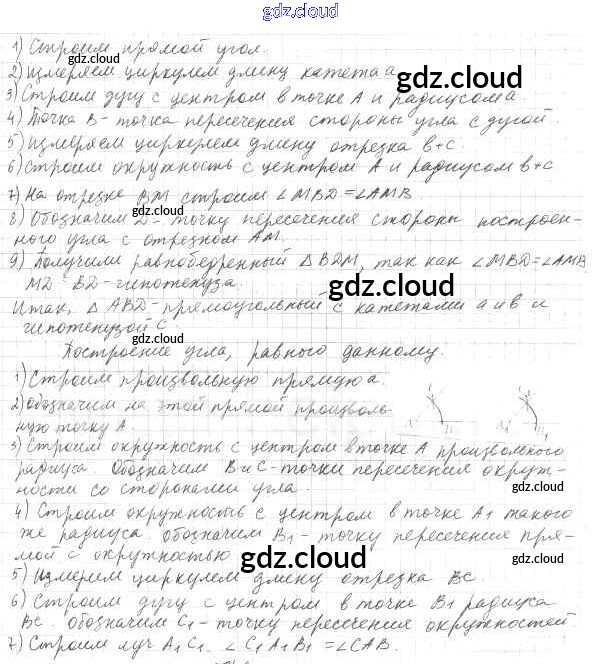 gdz.cloud
1) Строим прямой угол.
gdz.cloud
2) Измеряем циркулем длину катета а.
gdz.cloud
3) Строим дугу с центром в точке А и радиусом а.
4) Точка В - точка пересечения стороны угла с дугой.
5) Измеряем циркулем длину отрезка в+с.
gdz.cloud
6) Строим окружность с центром А и радиусом в+с
7) На отрезке ВМ строим ∠MBD=∠AMB.
gdz.cloud
8) Обозначим D - точку пересечения стороны построен-
gdz.cloud
ного угла с отрезком АМ.
9) Получили равнобедренный △BDM, так как ∠MBD=∠AMB
MD = BD - гипотенуза.
gdz.cloud
Итак, △ABD - прямоугольный с катетами а и в и
гипотенузой с.
gdz.cloud
Построение угла, равного данному.
1) Строим произвольную прямую а.
gdz.cloud
2) Обозначим на этой прямой произволь-
ную точку А.
gdz.cloud
3) Строим окружность с центром в точке А произвольного
радиуса. Обозначим В и С - точки пересечения окруж-
gdz.cloud
ности со сторонами угла.
gdz.cloud
4) Строим окружность с центром в точке А1 такого
же радиуса. Обозначим В1 - точку пересечения пря-
мой с окружностью.
gdz.cloud
gdz.cloud
5) Измерим циркулем длину отрезка ВС.
6) Строим дугу с центром в точке В1 радиуса
gdz.cloud
ВС. Обозначим С1 - точку пересечения окружностей.
7) Строим луч А1С1. ∠C1A1B1=∠CAB.
gdz.cloud